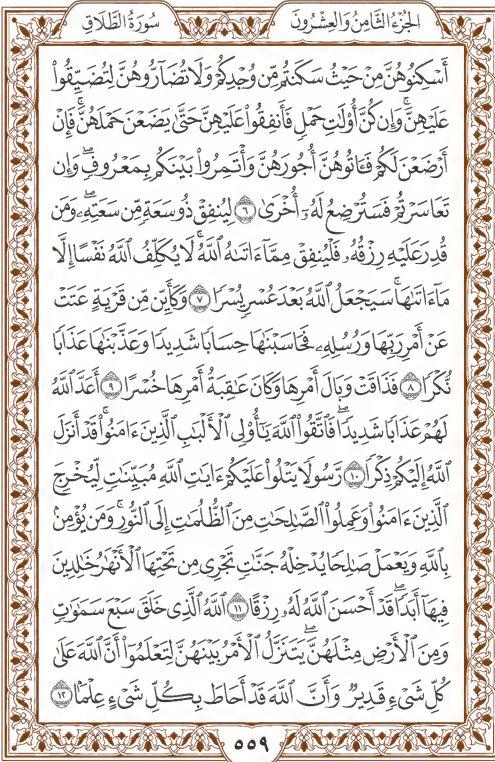 الجُزْءُ الثَّامِنُ وَالعِشْرُونَ
سُورَةُ الطَّلَاقِ
أَسْكِنُوهُنَّ مِنْ حَيْثُ سَكَنتُم مِّن وُجْدِكُمْ وَلَا تُضَآرُّوهُنَّ لِتُضَيِّقُوا۟
عَلَيْهِنَّ ۚ وَإِن كُنَّ أُو۟لَٰتِ حَمْلٍ فَأَنفِقُوا۟ عَلَيْهِنَّ حَتَّىٰ يَضَعْنَ حَمْلَهُنَّ ۚ فَإِنْ
أَرْضَعْنَ لَكُمْ فَـَٔاتُوهُنَّ أُجُورَهُنَّ وَأْتَمِرُوا۟ بَيْنَكُم بِمَعْرُوفٍ ۖ وَإِن
تَعَاسَرْتُمْ فَسَتُرْضِعُ لَهُۥٓ أُخْرَىٰ ٦ لِيُنفِقْ ذُو سَعَةٍ مِّن سَعَتِهِۦ ۖ وَمَن
قُدِرَ عَلَيْهِ رِزْقُهُۥ فَلْيُنفِقْ مِمَّآ ءَاتَىٰهُ ٱللَّهُ ۚ لَا يُكَلِّفُ ٱللَّهُ نَفْسًا إِلَّا
مَآ ءَاتَىٰهَا ۚ سَيَجْعَلُ ٱللَّهُ بَعْدَ عُسْرٍ يُسْرًا ٧ وَكَأَيِّن مِّن قَرْيَةٍ عَتَتْ
عَنْ أَمْرِ رَبِّهَا وَرُسُلِهِۦ فَحَاسَبْنَٰهَا حِسَابًا شَدِيدًا وَعَذَّبْنَٰهَا عَذَابًا
نُّكْرًا ٨ فَذَاقَتْ وَبَالَ أَمْرِهَا وَكَانَ عَٰقِبَةُ أَمْرِهَا خُسْرًا ٩ أَعَدَّ ٱللَّهُ
لَهُمْ عَذَابًا شَدِيدًا ۖ فَٱتَّقُوا۟ ٱللَّهَ يَٰٓأُو۟لِى ٱلْأَلْبَٰبِ ٱلَّذِينَ ءَامَنُوا۟ ۚ قَدْ أَنزَلَ
ٱللَّهُ إِلَيْكُمْ ذِكْرًا ١٠ رَّسُولًا يَتْلُوا۟ عَلَيْكُمْ ءَايَٰتِ ٱللَّهِ مُبَيِّنَٰتٍ لِّيُخْرِجَ
ٱلَّذِينَ ءَامَنُوا۟ وَعَمِلُوا۟ ٱلصَّٰلِحَٰتِ مِنَ ٱلظُّلُمَٰتِ إِلَى ٱلنُّورِ ۚ وَمَن يُؤْمِنۢ
بِٱللَّهِ وَيَعْمَلْ صَٰلِحًا يُدْخِلْهُ جَنَّٰتٍ تَجْرِى مِن تَحْتِهَا ٱلْأَنْهَٰرُ خَٰلِدِينَ
فِيهَآ أَبَدًا ۖ قَدْ أَحْسَنَ ٱللَّهُ لَهُۥ رِزْقًا ١١ ٱللَّهُ ٱلَّذِى خَلَقَ سَبْعَ سَمَٰوَٰتٍ
وَمِنَ ٱلْأَرْضِ مِثْلَهُنَّ يَتَنَزَّلُ ٱلْأَمْرُ بَيْنَهُنَّ لِتَعْلَمُوٓا۟ أَنَّ ٱللَّهَ عَلَىٰ
كُلِّ شَىْءٍ قَدِيرٌ وَأَنَّ ٱللَّهَ قَدْ أَحَاطَ بِكُلِّ شَىْءٍ عِلْمًۢا ١٢
٥٥٩